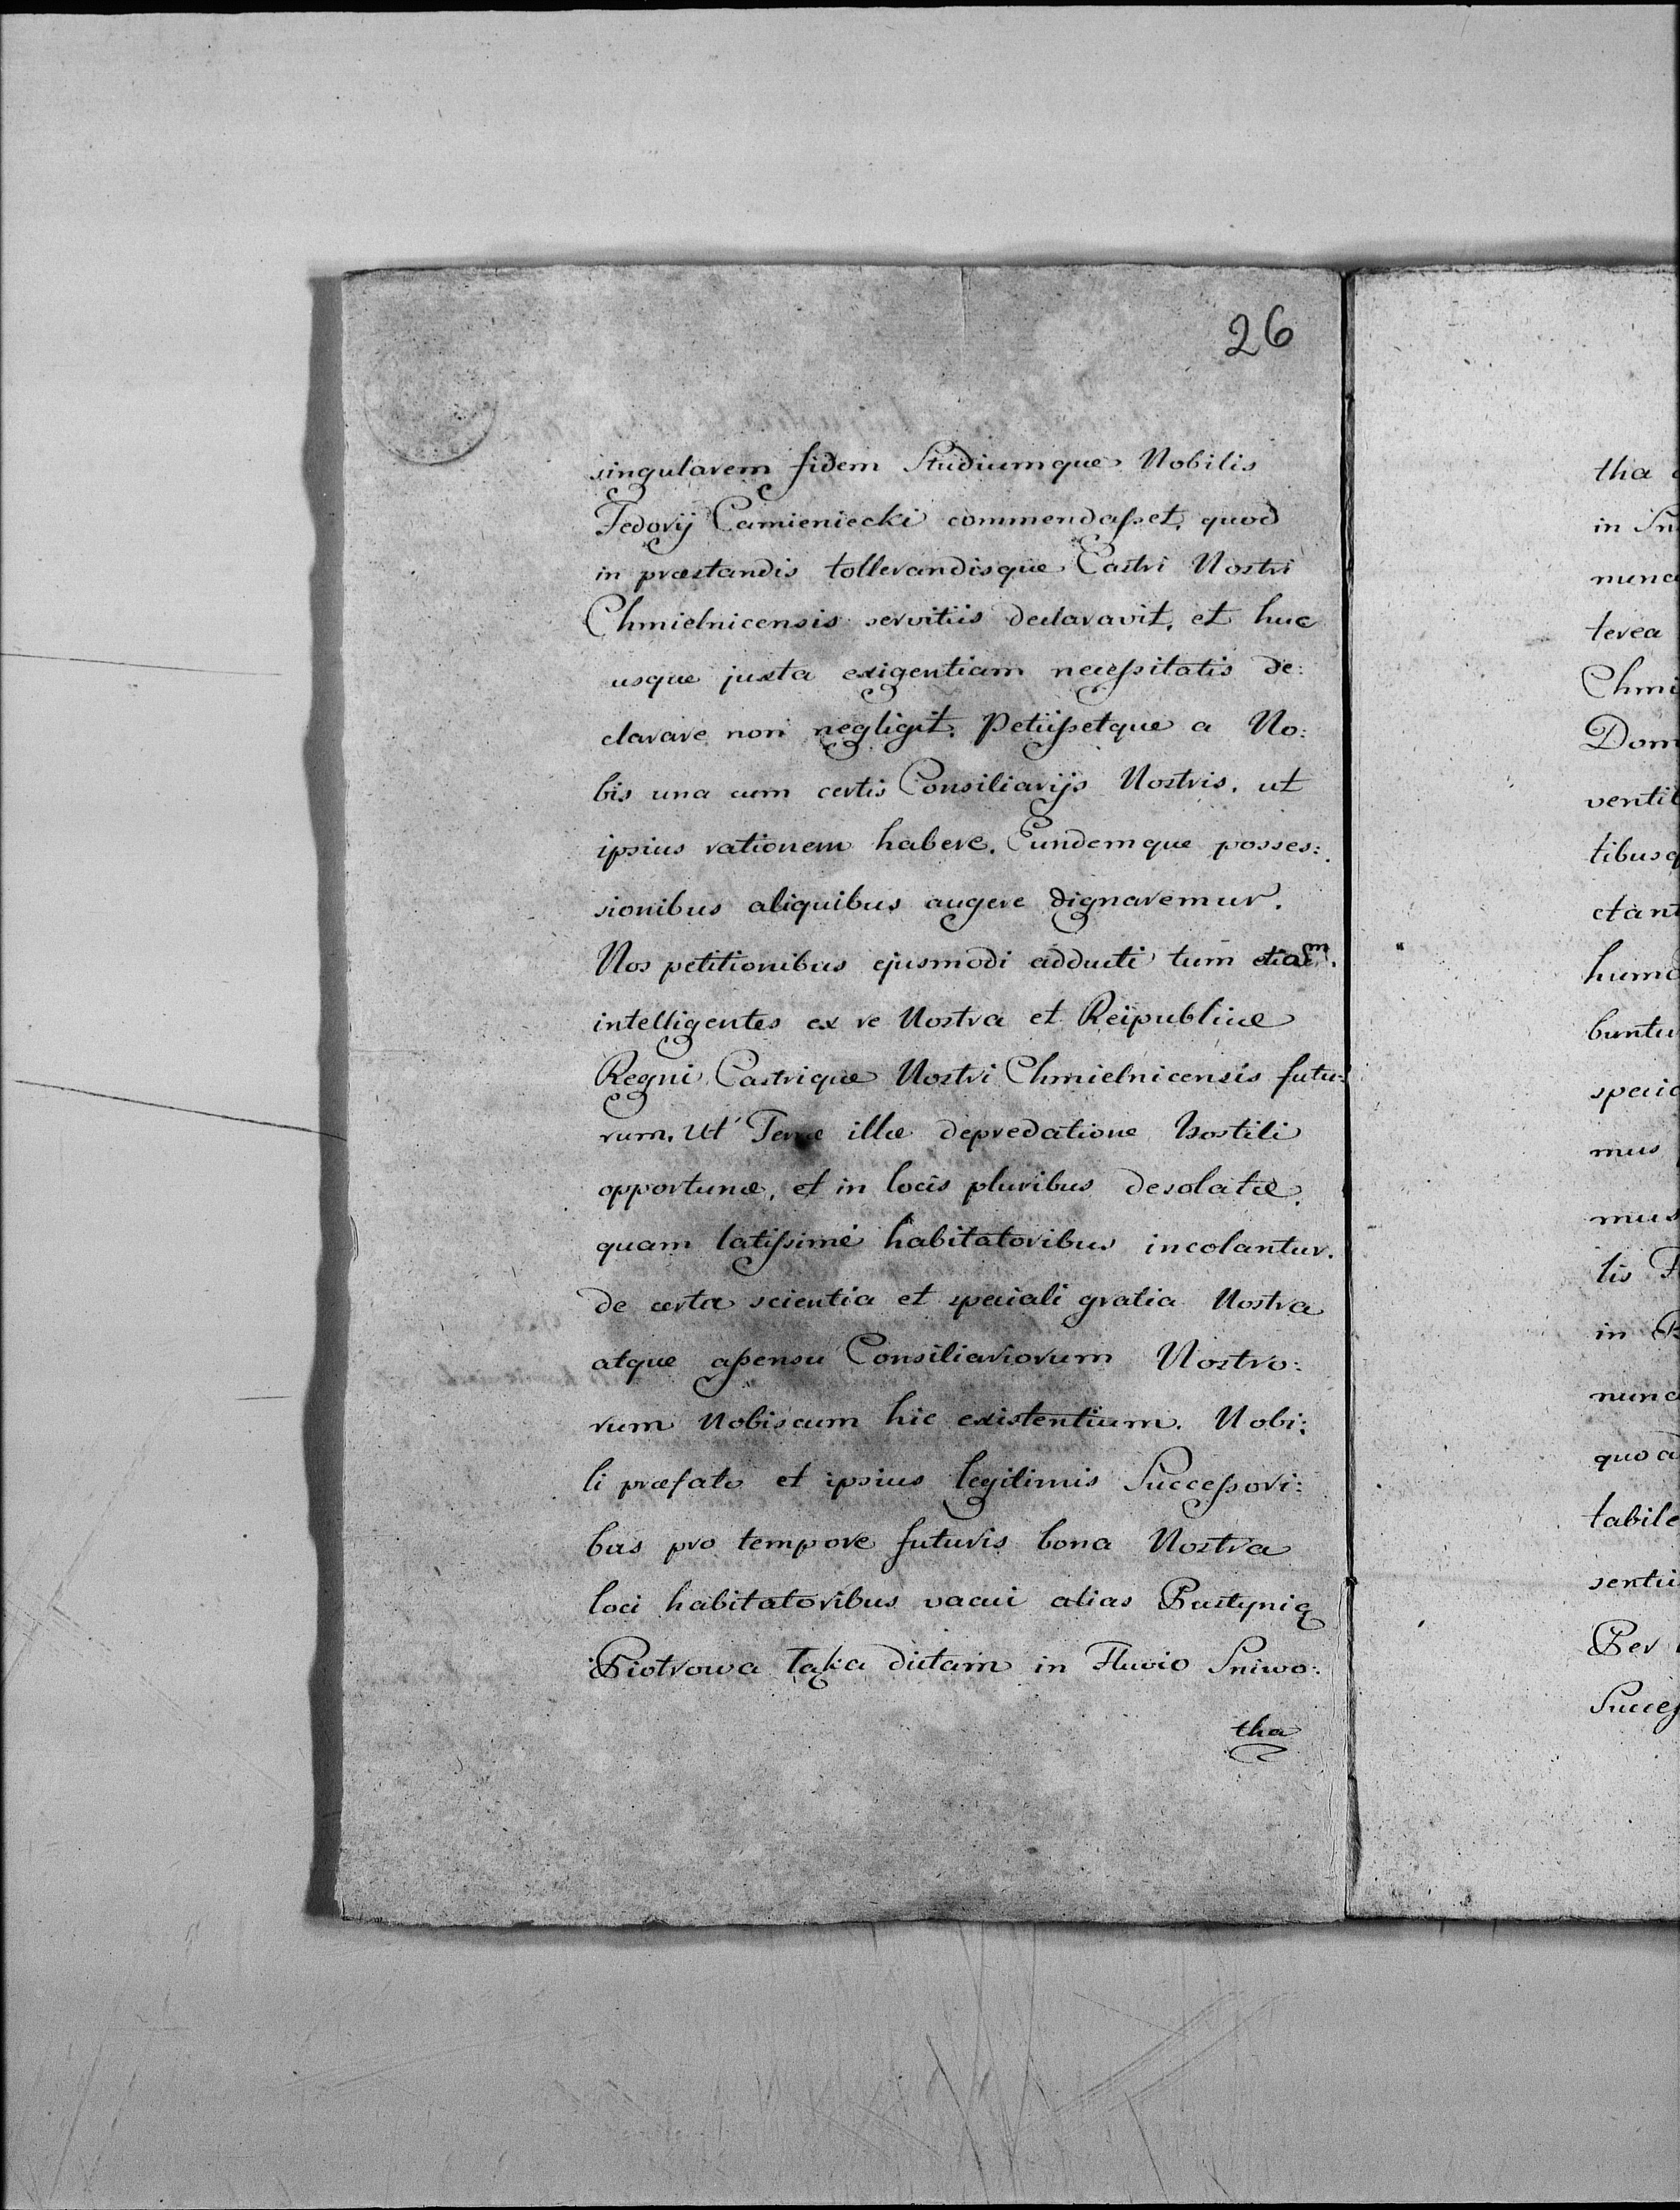 26
singularem fidem Studiumque Nobilis
Fedorij Camieniecki commendasset, quod
in præstandis tollerandisque Castri Nostri
Chmielnicensis servitiis declaravit, et huc
usque juxta exigentiam necessitatis de:
clarare non negligit. Petiissetque a No:
bis una cum certis Consiliarijs Nostris, ut
ipsius rationem habere. Eundemque posses:
sionibus aliquibus augere dignaremur.
Nos petitionibus ejusmodi adducti tum etiam
intelligentes ex re Nostra et Reipublicæ
Regni Castrique Nostri Chmielnicensis futu:
rum. Ut Terræ illæ depredatione hostili
opportunæ, et in locis pluribus desolatæ.
quam latissime habitatoribus incolantur.
de certa scientia et speciali gratia Nostra
atque assensu Consiliariorum Nostro:
rum Nobiscum hic existentium. Nobi:
li præfato et ipsius legitimis Successori:
bus pro tempore futuris bona Nostra
loci habitatoribus vacui alias Pustynię
Piotrowa Łąka dictam in Fluvio Sniwo:
tha
tha
in Sni
nunc
terea
Chmi
Dom
ventib
tibusq
ctant
huma
buntu
specia
mus
mus
lis F
in
nunc
quo a
tabile
sentii
Per
Success